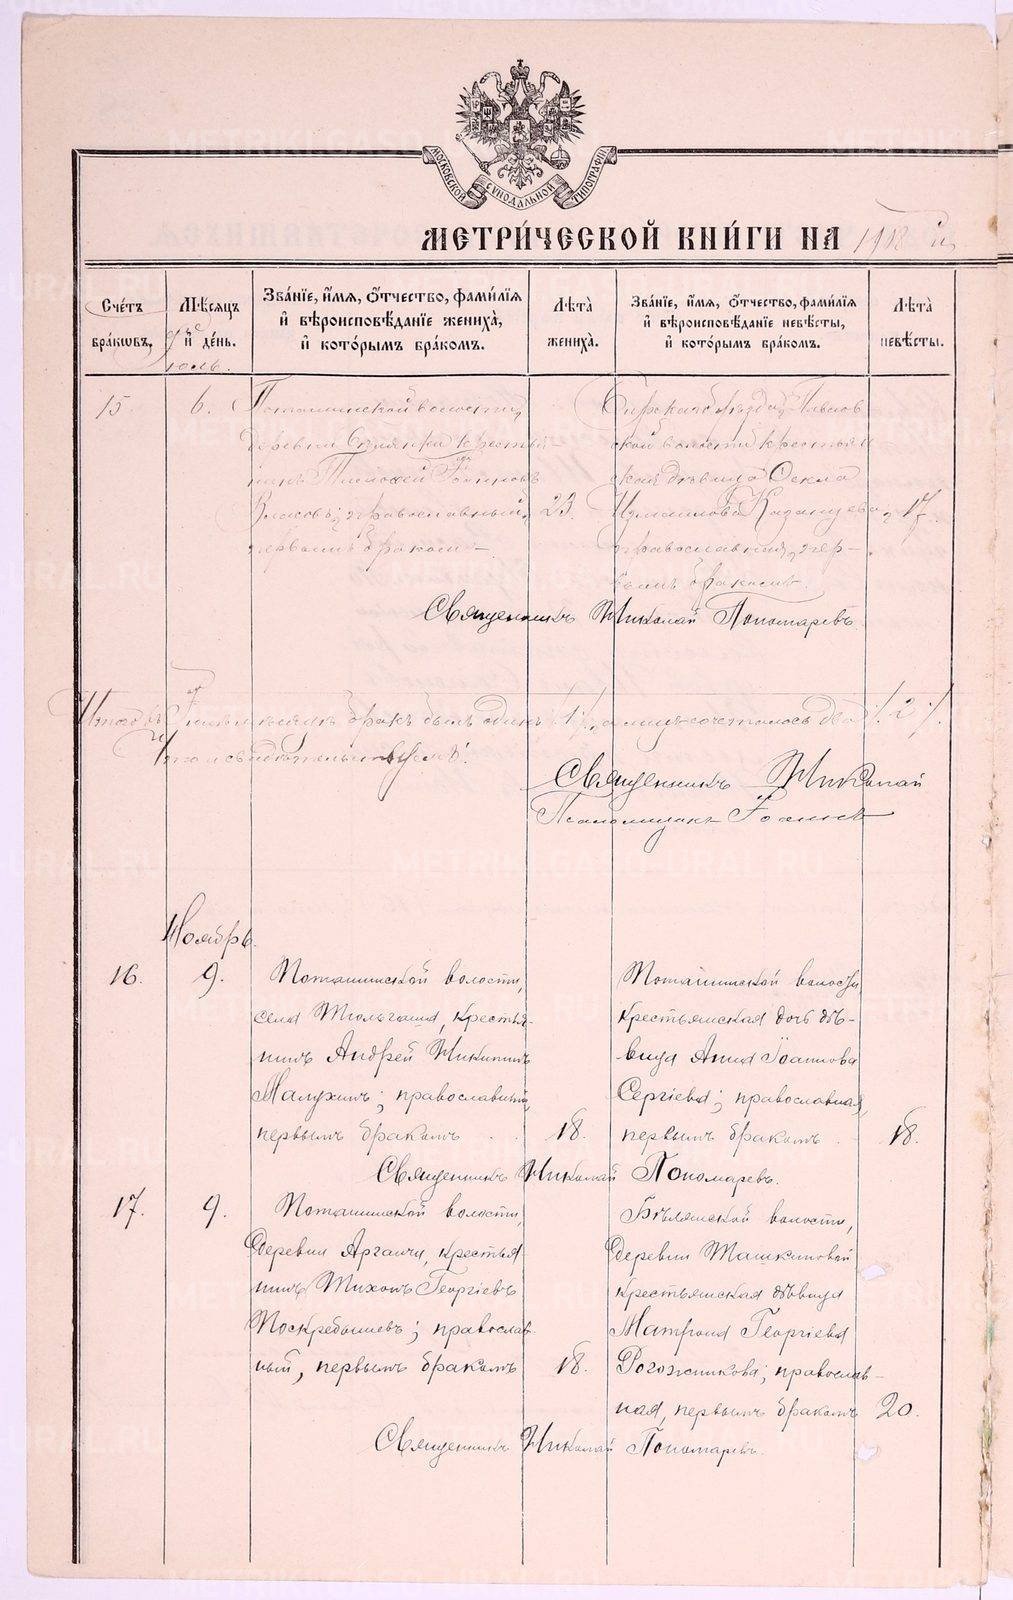 МОСКОВСКОЙ СѴНОДАЛЬНОЙ ТИПОГРАФІИ
МЕТРИ́ЧЕСКОЙ КНИ́ГИ НА 1918 г.
Сче́тъ бра́кѡвъ.
Мѣ́сяцъ и҆ де́нь.
Зва́нїе, и҆́мѧ, ѻ҆́тчество, фами́лїѧ и҆ вѣроисповѣ́данїе жениха̀, и҆ кото́рымъ бра́комъ.
Лѣта̀ жениха̀.
Зва́нїе, и҆́мѧ, ѻ҆́тчество, фами́лїѧ и҆ вѣроисповѣ́данїе невѣ́сты, и҆ кото́рымъ бра́комъ.
Лѣта̀ невѣ́сты.
Іюль.
15. 6.
Поташинской волости,
деревни крестья-
нинъ Тимофей
Власовъ; православный,
первымъ бракомъ
23.
Бирскаго уѣзда, Павлов
ской волости крестьян
ская дѣвица Ѳекла
Измаилова Казанцева,
православная, пер-
вымъ бракомъ.
17.
Священникъ Николай Пономаревъ.
Итого въ Іюлѣ мѣсяцѣ бракъ былъ одинъ /1/, а лицъ сочеталось два /2/.
Священникъ Николай
Псаломщикъ
Ноябрь.
16. 9.
Поташинской волости,
села Тюльгаша, крестья-
нинъ Андрей Никитинъ
Малухинъ; православный,
первымъ бракомъ
18.
Поташинской волости,
крестьянская дочь дѣ-
вица Анна Іоаннова
Сергіева; православная,
первымъ бракомъ
18.
Священникъ Николай Пономаревъ.
17. 9.
Поташинской волости,
деревни Артаичи, крестья
нинъ Тихонъ Георгіевъ
Поскребышевъ; православ-
ный, первымъ бракомъ
18.
Бѣлянской волости,
деревни Ташкиновой
крестьянская дѣвица
Матрона Георгіева
Рогожникова; православ-
ная, первымъ бракомъ
20.
Священникъ Николай Пономаревъ.
METRIKI.GASO-URAL.RU